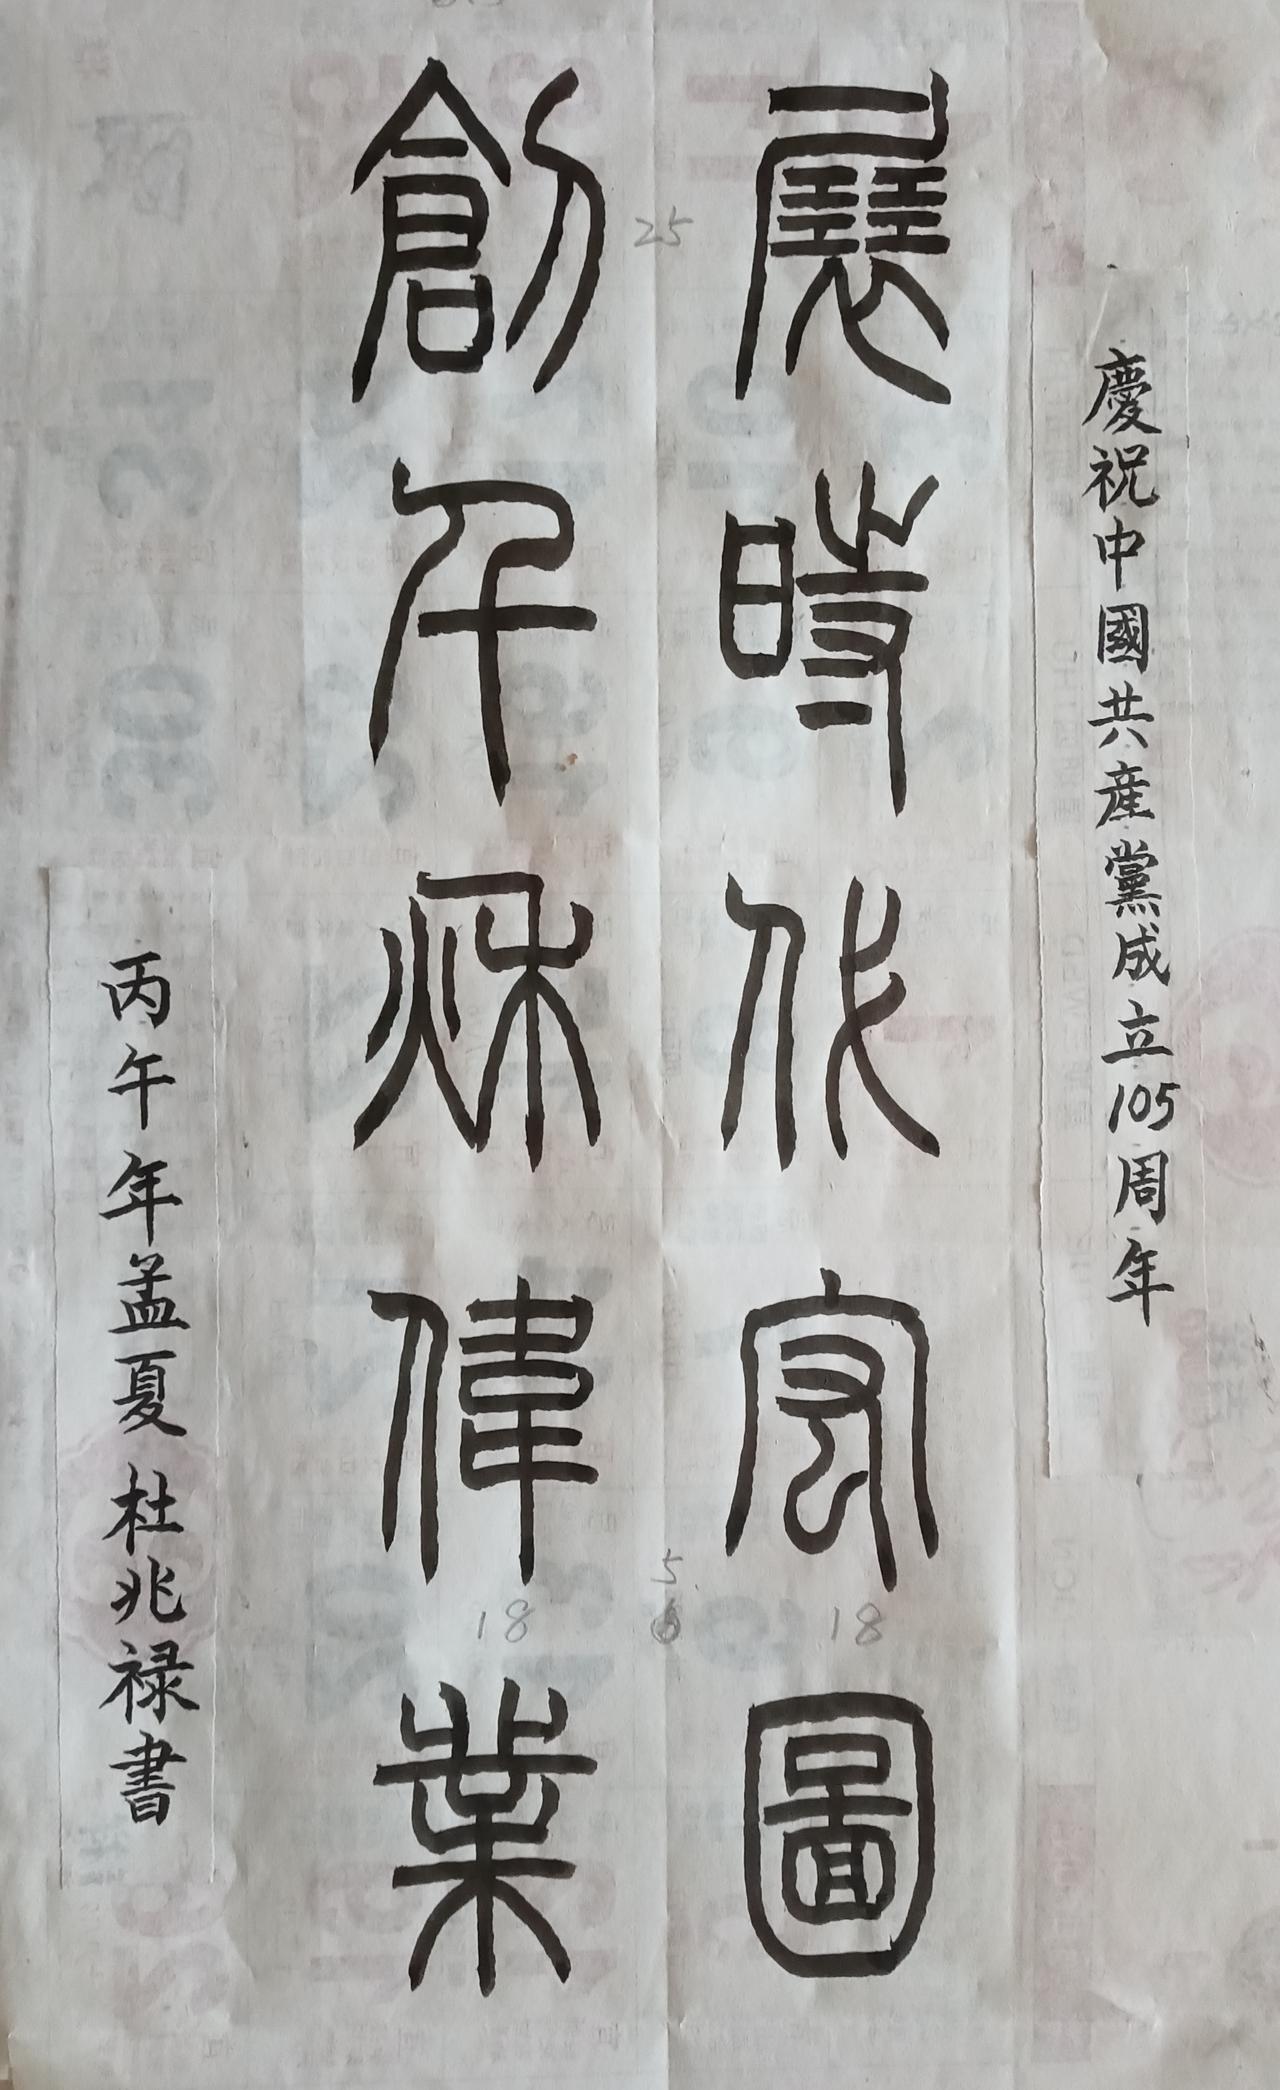 慶祝中國共産黨成立105周年
展時代宏圖
創千秋偉業
丙午年孟夏 杜兆禄書
25
5
18
18